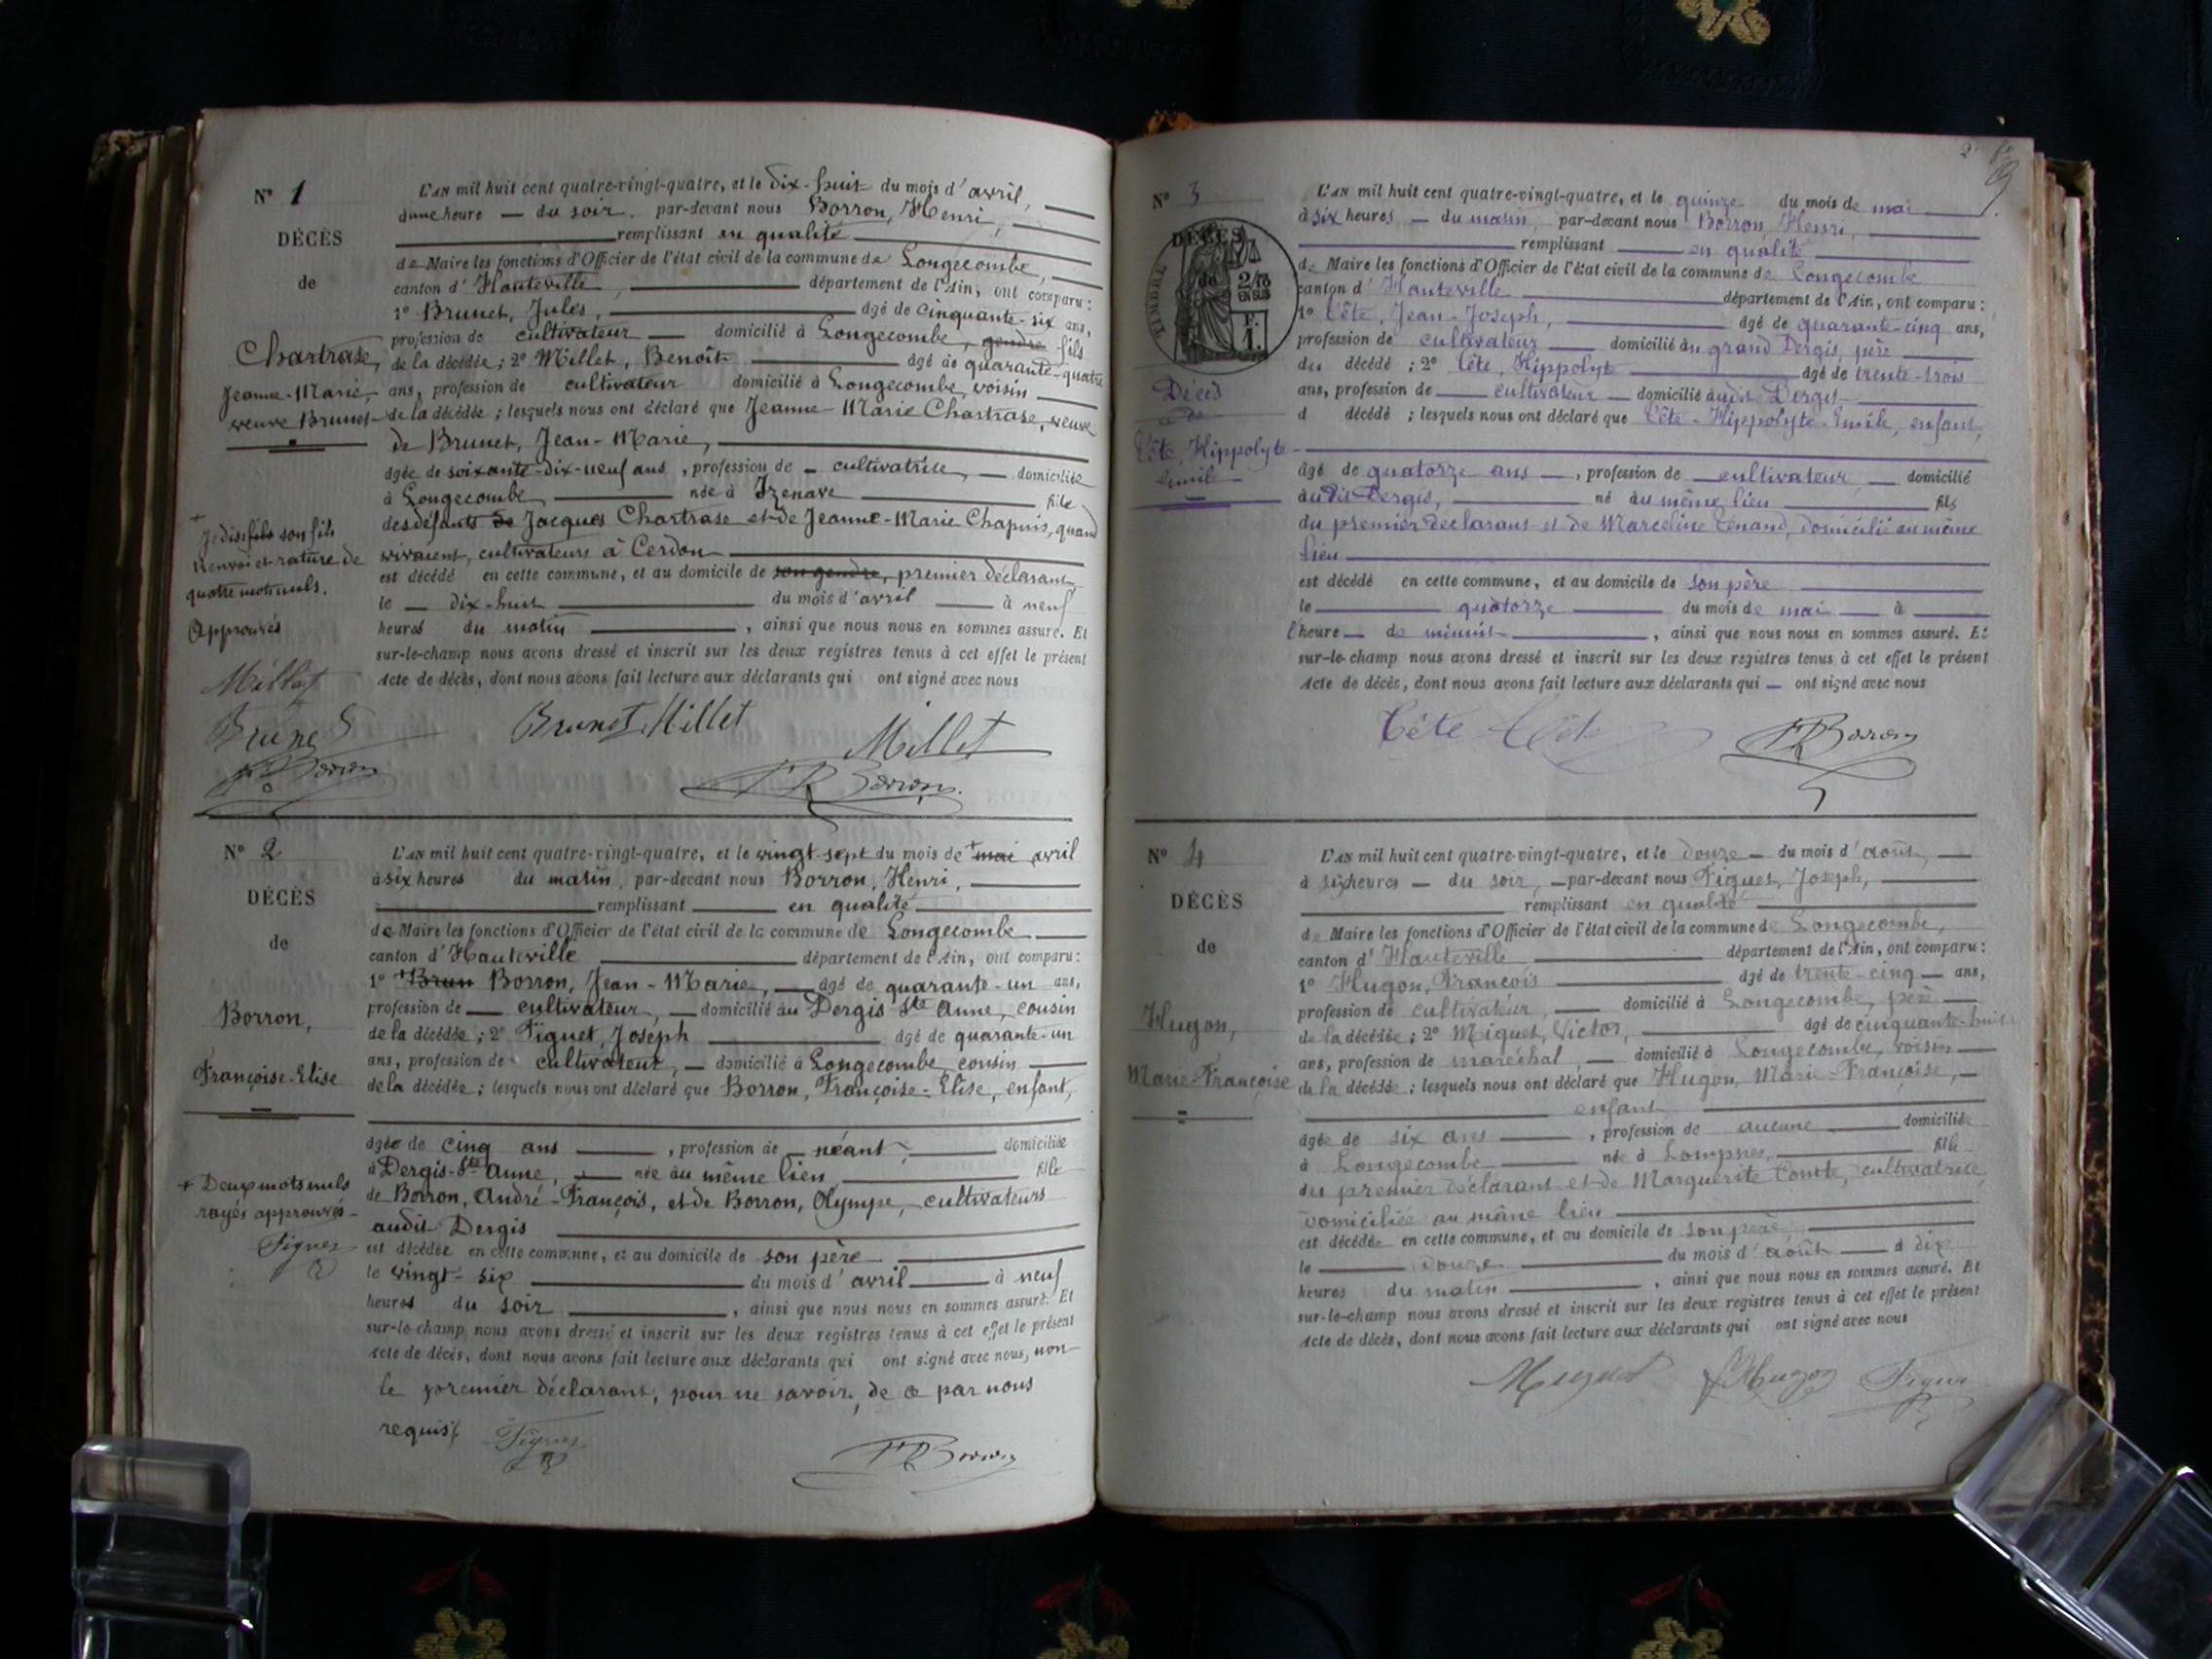 N° 1
DÉCÈS
de
Chartrase,
Jeanne-Marie,
veuve Brunet
+
Je dis fils son fils
Renvoi et rature de
quatre mots nuls.
Approuvés
Millet
Brunet
Borron
L'AN mil huit cent quatre-vingt-quatre, et le dix-huit du mois d'avril,
d'une heure du soir, par-devant nous Borron, Henri,
remplissant en qualité
de Maire les fonctions d'Officier de l'état civil de la commune de Longecombe,
canton d'Hauteville, département de l'Ain, ont comparu :
1° Brunet, Jules, âgé de cinquante-six ans,
profession de cultivateur domicilié à Longecombe, gendre fils
de la décédée ; 2° Millet, Benoît âgé de quarante-quatre
ans, profession de cultivateur domicilié à Longecombe, voisin
de la décédée ; lesquels nous ont déclaré que Jeanne-Marie Chartrase, veuve
de Brunet, Jean-Marie,
âgée de soixante-dix-neuf ans, profession de cultivatrice, domiciliée
à Longecombe, née à Izenave fille
des défunts de Jacques Chartrase et de Jeanne-Marie Chapuis, quand
vivaient, cultivateurs à Cerdon
est décédé en cette commune, et au domicile de son gendre, premier déclarant
le dix-huit du mois d'avril à neuf
heures du matin, ainsi que nous nous en sommes assuré. Et
sur-le-champ nous avons dressé et inscrit sur les deux registres tenus à cet effet le présent
Acte de décès, dont nous avons fait lecture aux déclarants qui ont signé avec nous
Brunet Millet
Millet
Borron
N° 2
DÉCÈS
de
Borron,
Françoise-Elise
+ Deux mots nuls
rayés approuvés
Figuet
L'AN mil huit cent quatre-vingt-quatre, et le vingt-sept du mois de + mai avril
à six heures du matin, par-devant nous Borron, Henri,
remplissant en qualité
de Maire les fonctions d'Officier de l'état civil de la commune de Longecombe
canton d'Hauteville département de l'Ain, ont comparu :
1° + Brun Borron, Jean-Marie, âgé de quarante-un ans,
profession de cultivateur, domicilié au Dergis Ste Anne, cousin
de la décédée ; 2° Figuet, Joseph âgé de quarante-un
ans, profession de cultivateur, domicilié à Longecombe, cousin
de la décédée ; lesquels nous ont déclaré que Borron, Françoise-Elise, enfant,
âgée de cinq ans, profession de néant, domiciliée
à Dergis-Ste Anne, née au même lieu, fille
de Borron, André-François, et de Borron, Olympe, cultivateurs
audit Dergis
est décédée en cette commune, et au domicile de son père
le vingt-six du mois d'avril à neuf
heures du soir, ainsi que nous nous en sommes assuré. Et
sur-le-champ nous avons dressé et inscrit sur les deux registres tenus à cet effet le présent
Acte de décès, dont nous avons fait lecture aux déclarants qui ont signé avec nous, non
le premier déclarant, pour ne savoir, de ce par nous
requis.
Figuet
Borron
N° 3
DÉCÈS
de
TIMBRE
2/10
EN SUS
F.
1.
Décès
de
Tête, Hippolyte-
Emile
L'AN mil huit cent quatre-vingt-quatre, et le quinze du mois de mai
à six heures du matin, par-devant nous Borron Henri,
remplissant en qualité
de Maire les fonctions d'Officier de l'état civil de la commune de Longecombe
canton d'Hauteville département de l'Ain, ont comparu :
1° Tête, Jean-Joseph, âgé de quarante-cinq ans,
profession de cultivateur domicilié au grand Dergis, père
du décédé ; 2° Tête, Hippolyte âgé de trente-trois
ans, profession de cultivateur domicilié audit Dergis
d décédé ; lesquels nous ont déclaré que Tête-Hippolyte-Emile, enfant,
âgé de quatorze ans, profession de cultivateur domicilié
audit Dergis, né au même lieu fils
du premier déclarant et de Marceline Tenand, domicilié au même
lieu
est décédé en cette commune, et au domicile de son père
le quatorze du mois de mai à
l'heure de minuit, ainsi que nous nous en sommes assuré. Et
sur-le-champ nous avons dressé et inscrit sur les deux registres tenus à cet effet le présent
Acte de décès, dont nous avons fait lecture aux déclarants qui ont signé avec nous
Tête Tête
Borron
N° 4
DÉCÈS
de
Hugon,
Marie-Françoise
L'AN mil huit cent quatre-vingt-quatre, et le douze du mois d'août,
à six heures du soir, par-devant nous Figuet, Joseph,
remplissant en qualité
de Maire les fonctions d'Officier de l'état civil de la commune de Longecombe,
canton d'Hauteville département de l'Ain, ont comparu :
1° Hugon, François âgé de trente-cinq ans,
profession de cultivateur, domicilié à Longecombe, père
de la décédée ; 2° Miguet, Victor, âgé de cinquante-huit
ans, profession de maréchal, domicilié à Longecombe, voisin
de la décédée ; lesquels nous ont déclaré que Hugon, Marie-Françoise,
enfant
âgée de six ans, profession de aucune domiciliée
à Longecombe née à Lompnes, fille
du premier déclarant et de Marguerite Comte, cultivatrice,
domiciliée au même lieu
est décédée en cette commune, et au domicile de son père
le douze du mois d'août à dix
heures du matin, ainsi que nous nous en sommes assuré. Et
sur-le-champ nous avons dressé et inscrit sur les deux registres tenus à cet effet le présent
Acte de décès, dont nous avons fait lecture aux déclarants qui ont signé avec nous
Miguet Hugon Figuet